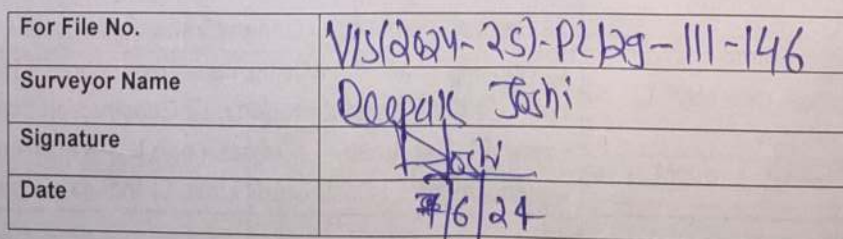 For File No. VIS(2024-25)-PL129-111-146
Surveyor Name Deepak Joshi
Signature Joshi
Date 7/6/24